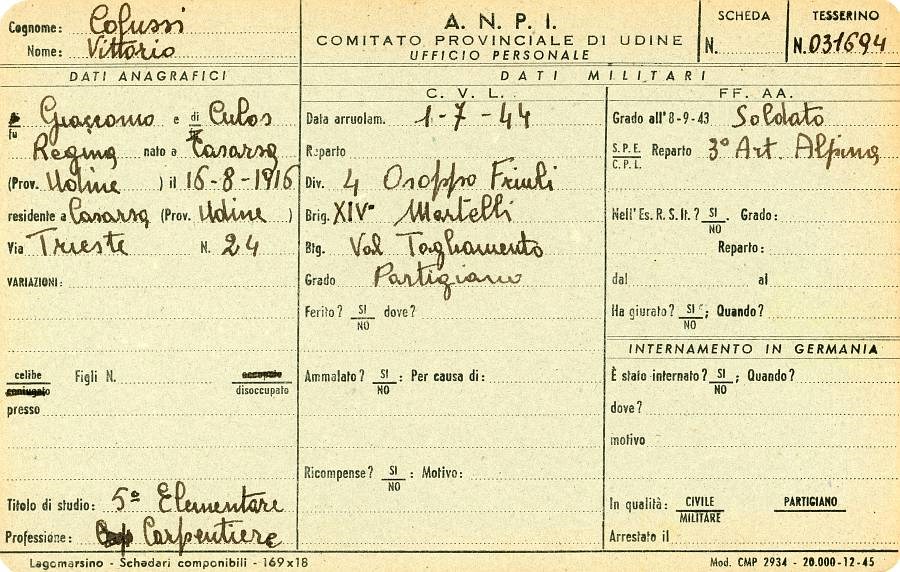 Cognome: Colussi
Nome: Vittorio
A. N. P. I.
COMITATO PROVINCIALE DI UDINE
UFFICIO PERSONALE
SCHEDA
N.
TESSERINO
N. 031694
DATI ANAGRAFICI
di
fu Giacomo e di fu Culos
Regina nato a Casarsa
(Prov. Udine ) il 16-8-1916
residente a Casarsa (Prov. Udine )
Via Trieste N. 24
VARIAZIONI:
celibe
coniugato
Figli N.
occupato
disoccupato
presso
Titolo di studio: 5º Elementare
Professione: Carpentiere
DATI MILITARI
C. V. L.
Data arruolam. 1-7-44
Reparto
Div. 4 Osoppo Friuli
Brig. XIVª Martelli
Btg. Val Tagliamento
Grado Partigiano
Ferito? SI NO dove?
Ammalato? SI NO : Per causa di:
Ricompense? SI NO : Motivo:
FF. AA.
Grado all'8-9-43 Soldato
S.P.E.
C.P.L. Reparto 3º Art. Alpina
Nell'Es. R. S. It.? SI NO . Grado:
Reparto:
dal al
Ha giurato? SI NO ; Quando?
INTERNAMENTO IN GERMANIA
È stato internato? SI NO ; Quando?
dove?
motivo
In qualità: CIVILE MILITARE PARTIGIANO
Arrestato il
Lagomarsino - Schedari componibili - 169x18
Mod. CMP 2934 - 20.000-12-45